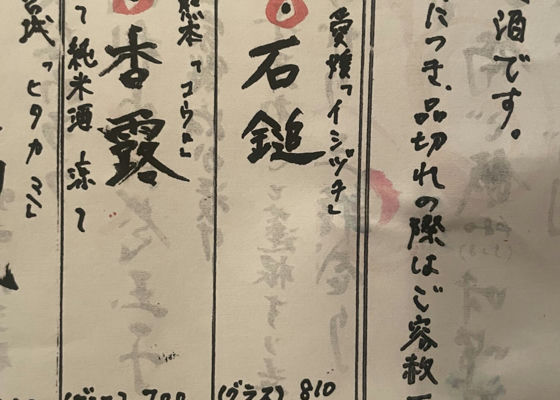 酒です。
につき、品切れの際はご容赦
愛媛「イシヅチ」
石鎚
(グラス) 810
熊本「コウロ」
香露
〜純米酒 涼〜
(グラス) 700
宮城「ヒタカミ」